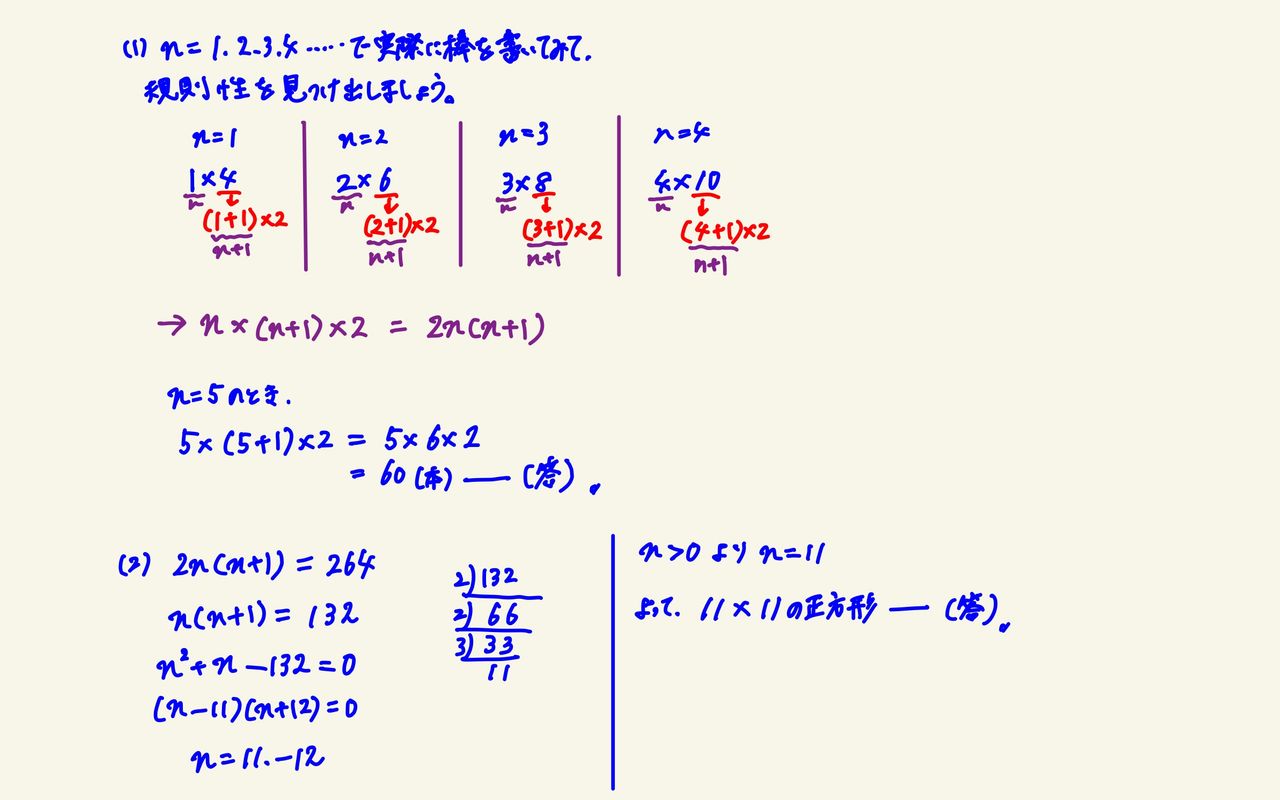 (1) n=1.2.3.4……で実際に棒を書いてみて.
規則性を見つけ出しましょう。
n=1
1×4
n
(1+1)×2
n+1
n=2
2×6
n
(2+1)×2
n+1
n=3
3×8
n
(3+1)×2
n+1
n=4
4×10
n
(4+1)×2
n+1
→ n×(n+1)×2 = 2n(n+1)
n=5のとき.
5×(5+1)×2 = 5×6×2
= 60(本) ― (答)。
(2) 2n(n+1) = 264
n(n+1) = 132
n²+n-132=0
(n-11)(n+12)=0
n=11.-12
2)132
2)66
3)33
11
n>0 より n=11
よって. 11×11の正方形 ― (答)。